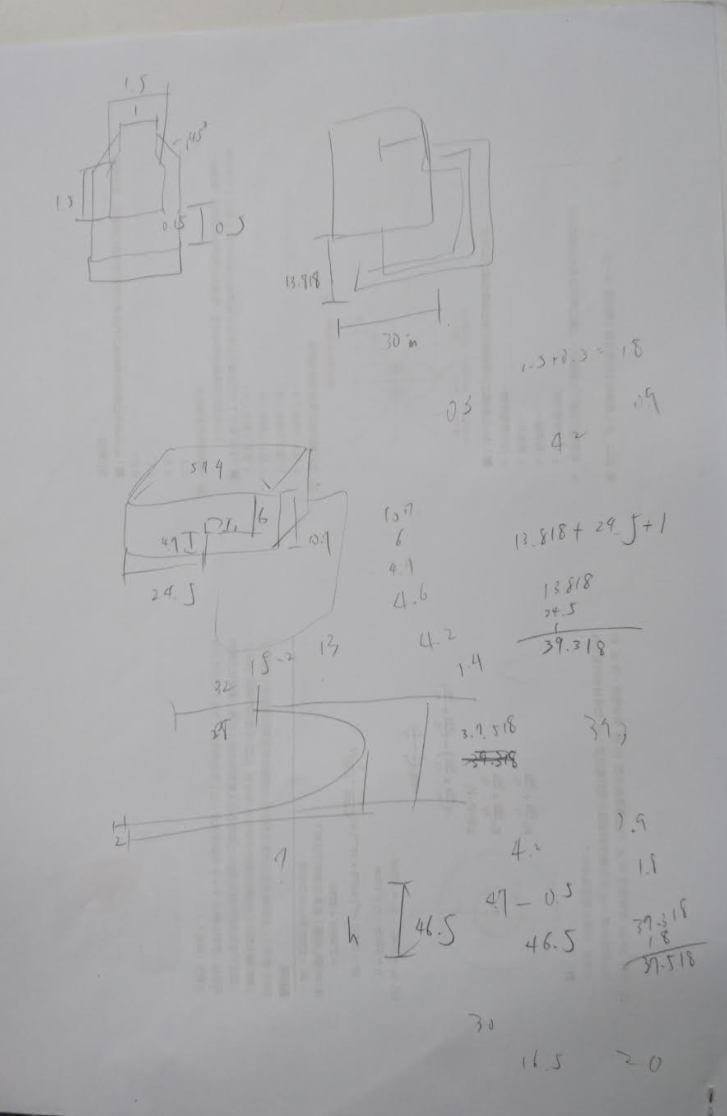 1.5
1
45°
1.5
0.15
0.5
13.818
30 in
1.5+0.3 = 1.8
0.3
0.9
4.2
6
4.9
0.9
24.5
10.9
6
4.9
4.6
4.2
1.4
13.818 + 24.5+1
13.818
24.5
1
39.318
15-2
13
32
2
37.518
39.318
4.2
1.8
h
46.5
47 - 0.5
46.5
39.318
1.8
37.518
30
16.5
20